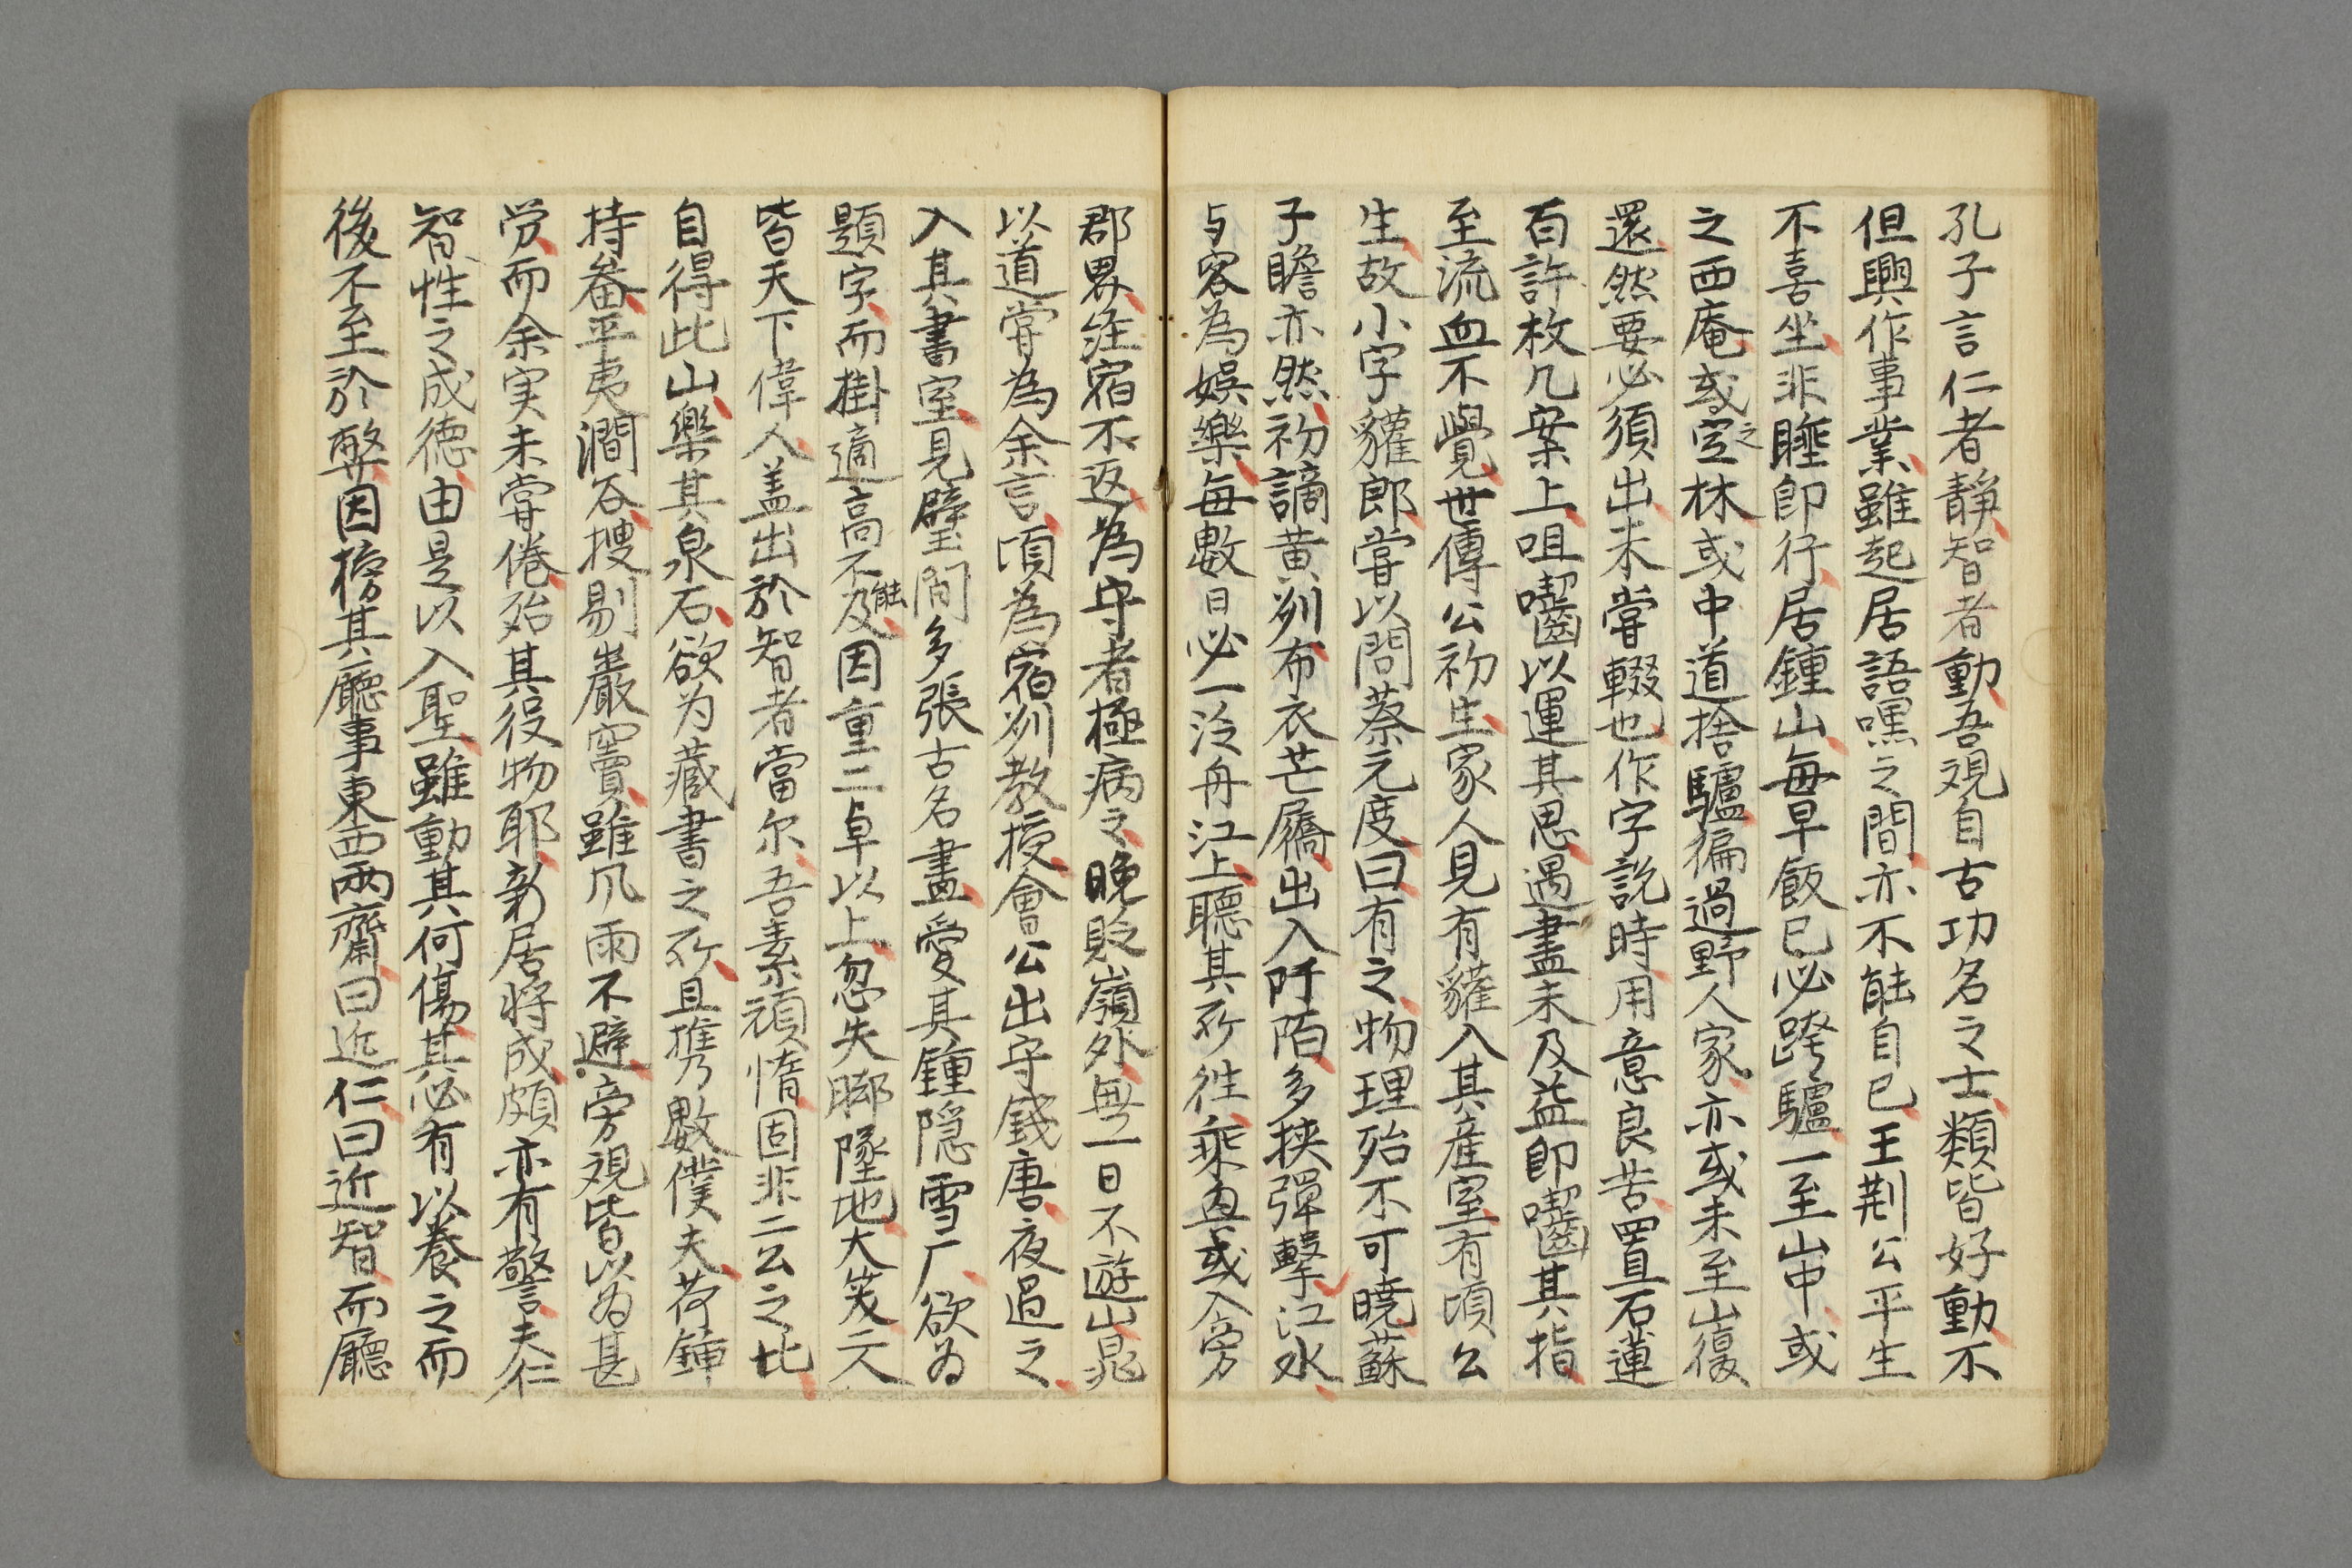 孔子言仁者靜智者動吾視自古功名之士類皆好動不
但興作事業雖起居語嘿之間亦不能自已王荆公平生
不喜坐非睡即行居鍾山每早飯已必跨驢一至山中或
之西庵或之定林或中道捨驢徧過野人家亦或未至山復
還然要必須出未嘗輟也作字説時用意良苦置石蓮
百許枚几案上咀嚙以運其思遇盡未及益即嚙其指
至流血不覺世傳公初生家人見有貛入其産室有頃公
生故小字貛郎嘗以問蔡元度曰有之物理殆不可曉蘇
子瞻亦然初謫黄州布衣芒屩出入阡陌多挾彈擊江水
与客為娯樂每數日必一泛舟江上聽其所往乘興或入旁
郡界經宿不返為守者極病之晚貶嶺外無一日不遊山晁
以道嘗為余言頃為宿州教授會公出守錢唐夜過之
入其書室見壁間多張古名畫愛其鍾隠雪厂欲为
題字而掛適高不能及因重二卓以上忽失脚墜地大笑二人
皆天下偉人盖出於智者當尔吾素頑惰固非二公之比
自得此山樂其泉石欲为藏書之所且携數僕夫荷鍤
持畚平夷澗谷搜剔巖竇雖風雨不避旁視皆以为甚
労而余実未嘗倦殆其役物耶新居将成頗亦有警夫仁
智性之成德由是以入聖雖動其何傷其必有以養之而
後不至於弊因榜其廳事東西兩齋曰近仁曰近智而廳